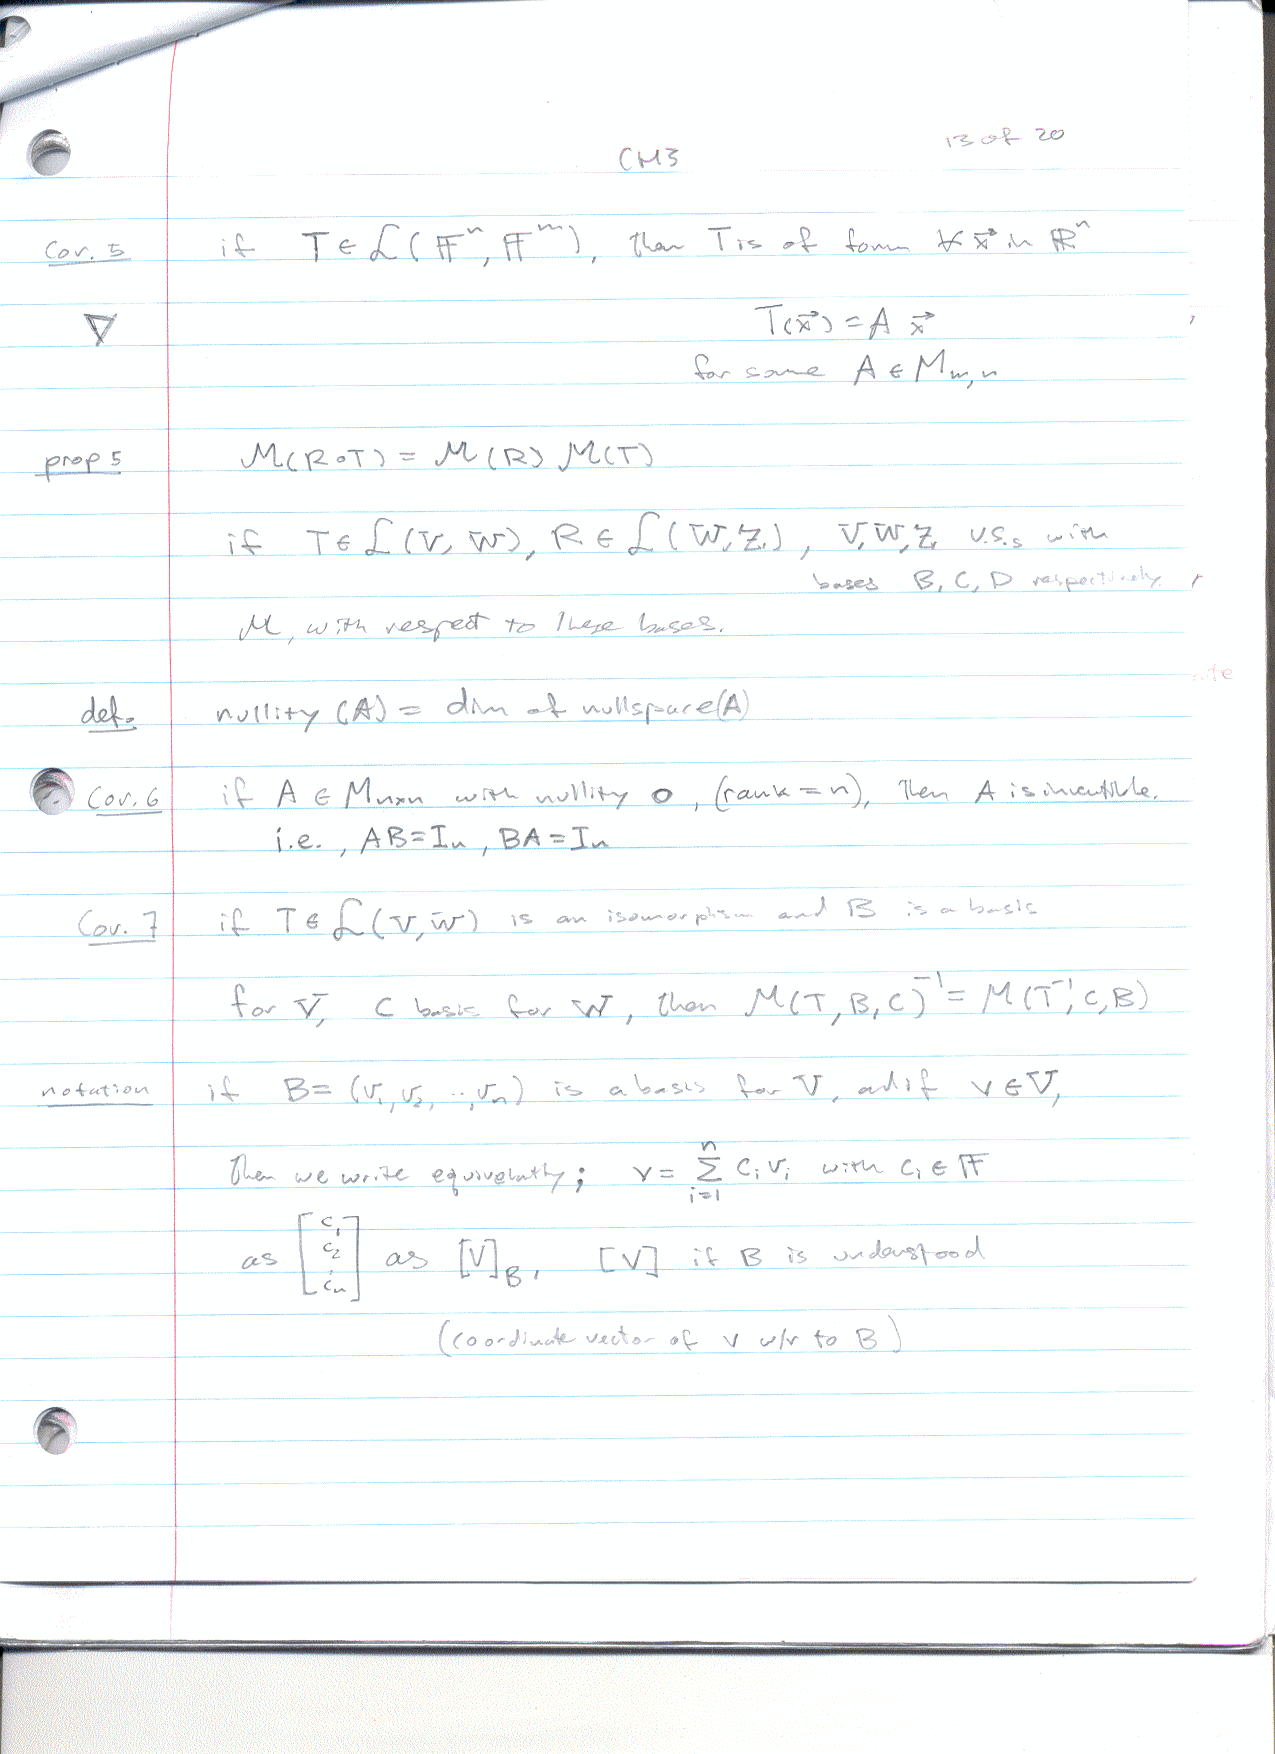 13 of 20
CH3
Cor. 5 if T ∈ ℒ(𝔽ⁿ, 𝔽ᵐ), then T is of form ∀ x⃗ in ℝⁿ
∇ T(x⃗) = A x⃗
for some A ∈ M m,n
prop 5 ℳ(R∘T) = ℳ(R) ℳ(T)
if T ∈ ℒ(V, W), R ∈ ℒ(W, Z), V, W, Z v.s.s with
bases B, C, D respectively.
ℳ, with respect to these bases.
def. nullity (A) = dim of nullspace(A)
Cor. 6 if A ∈ Mₙₓₙ with nullity 0, (rank = n), then A is invertible.
i.e., AB = Iₙ, BA = Iₙ
Cor. 7 if T ∈ ℒ(V, W) is an isomorphism and B is a basis
for V, C basis for W, then ℳ(T, B, C)⁻¹ = ℳ(T⁻¹, C, B)
notation if B = (v₁, v₂, ..., vₙ) is a basis for V, and if v ∈ V,
then we write equivalently; v = ∑ᵢ₌₁ⁿ cᵢ vᵢ with cᵢ ∈ 𝔽
as [c₁ c₂ ⋮ cₙ] as [v]_B, [v] if B is understood
(coordinate vector of v w/r to B)